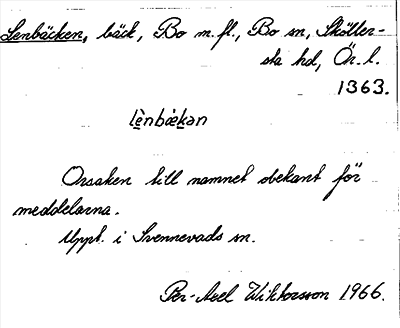 Lenbäcken, bäck, Bo m.fl., Bo sn, Sköller-
sta hd, Ör. l.
1363.
lènbækən
Orsaken till namnet obekant för
meddelarna.
Uppt. i Svennevads sn.
Per-Axel Wiktorsson 1966.